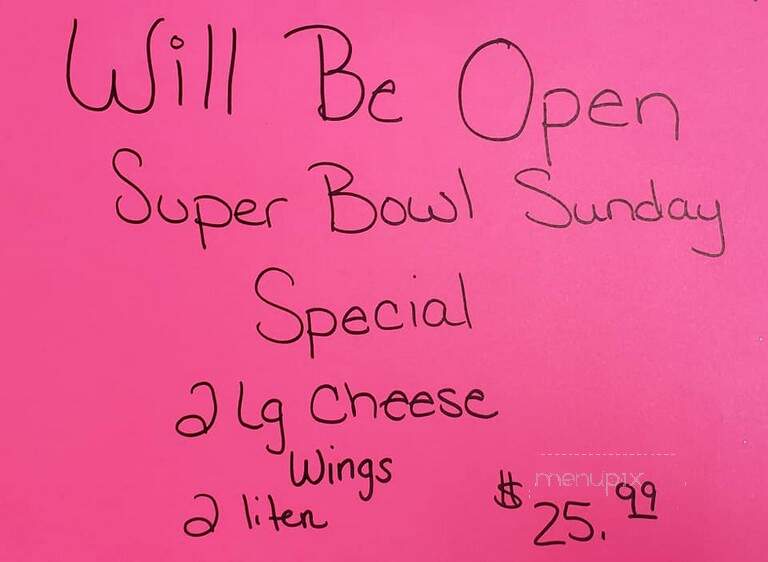 Will Be Open
Super Bowl Sunday
Special
2 Lg Cheese
Wings
2 liter
$25.99
menupix